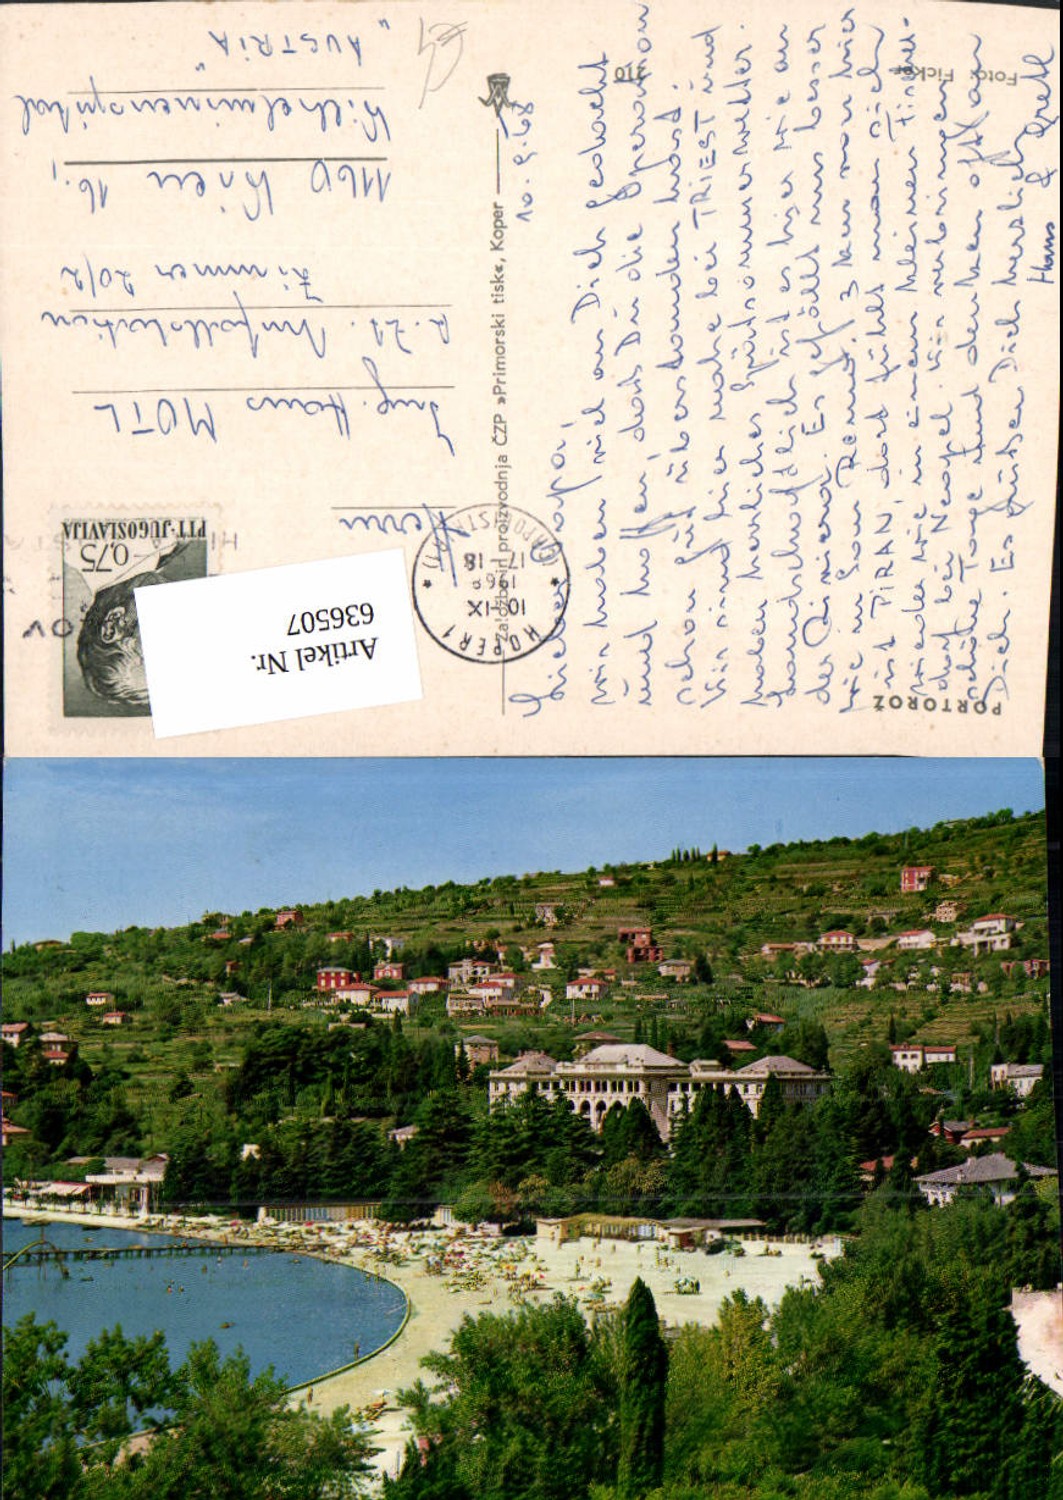 PORTOROŽ
Foto: Ficker
210
Založbin proizvodnja ČZP »Primorski tiske, Koper
10.9.68
Lieber Opa,
wir haben viel an Dich gedacht
und hoffen, dass Du die Operation
schon gut überstanden hast.
Wir sind hier nahe bei TRIEST und
haben herrliches Spätsommerwetter.
Landschaftlich ist es hier wie an
der Riviera. Es gefällt uns besser
wie in San Remo. 3 km von hier
ist PIRAN, dort fühlt man sich
wieder wie in einem kleinen Fischer-
dorf bei Neapel. Wir verbringen
schöne Tage und denken oft an
Dich. Es grüßen Dich herzlich
Hans & Grete
PTT-JUGOSLAVIJA
0,75
KOPER 1
10-IX
17-18
CAPODISTRIA
Artikel Nr.
636507
Herrn
Ing. Hans MOTL
p. Zi. Unfallstation
Zimmer 20/2
1160 Wien 16.,
Wilhelminenspital
"AUSTRIA"